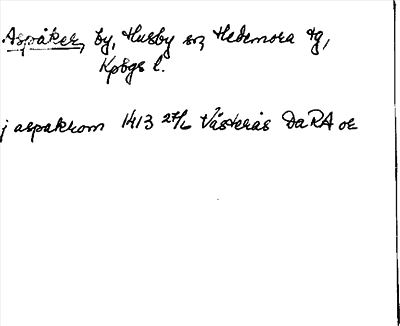 Aspåker, by, Husby sn, Hedemora tg,
Kpbgs l.
j aspakrom 1413 27/2 Västerås DaRA or